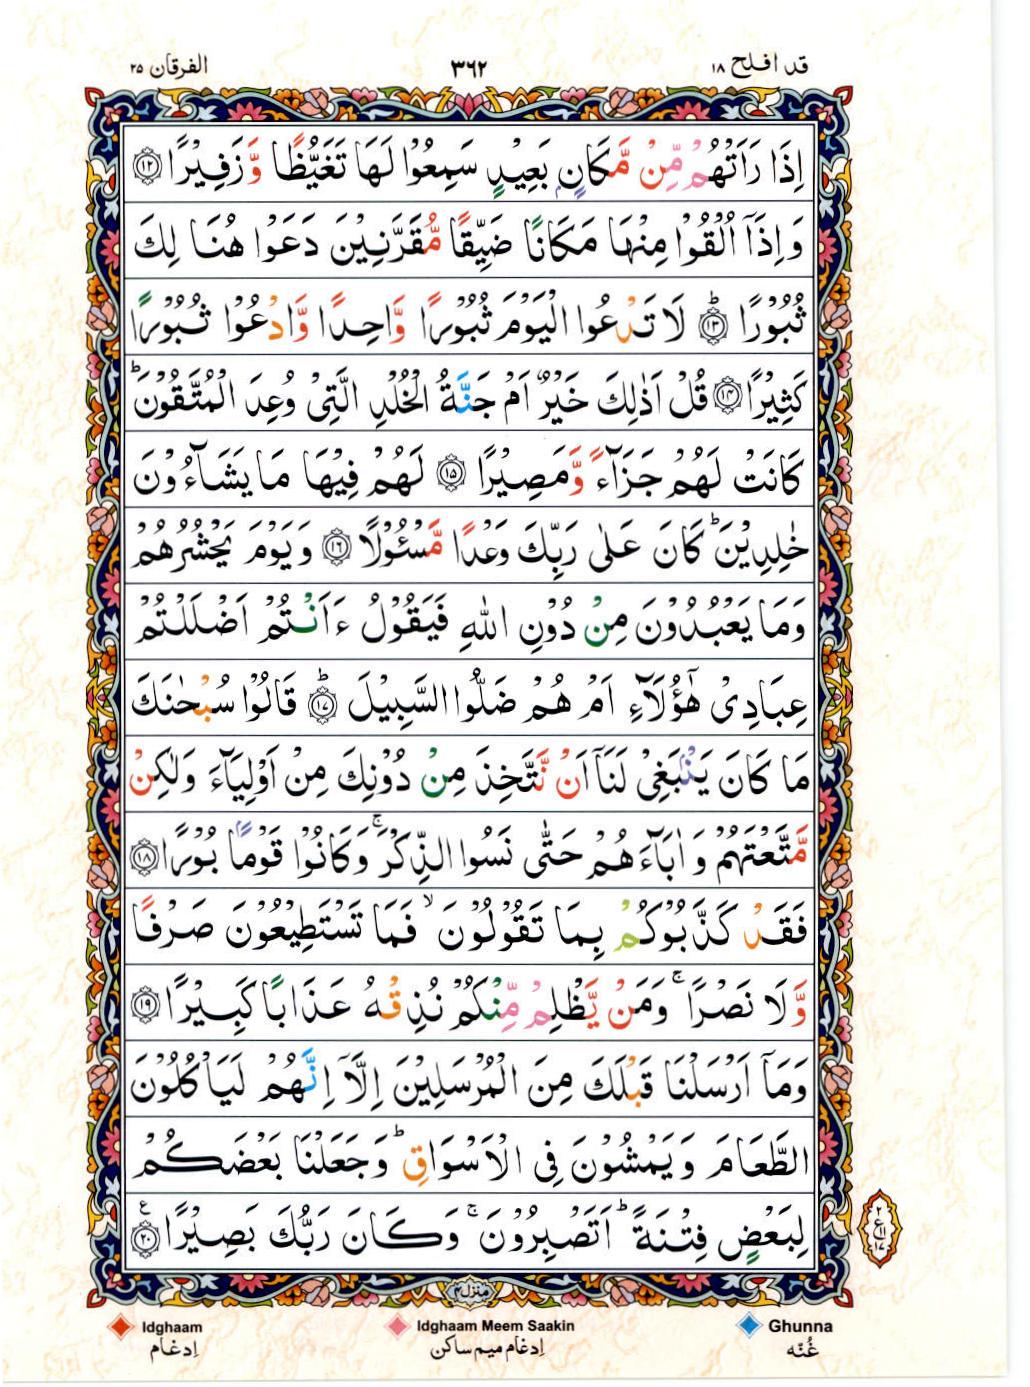 قد افلح ۱۸
۳۶۲
الفرقان ۲۵
اِذَا رَاَتْهُمْ مِّنْ مَّكَانٍۭ بَعِيْدٍ سَمِعُوْا لَهَا تَغَيُّظًا وَّزَفِيْرًا ﴿۱۲﴾
وَاِذَاۤ اُلْقُوْا مِنْهَا مَكَانًا ضَيِّقًا مُّقَرَّنِيْنَ دَعَوْا هُنَا لِكَ
ثُبُوْرًا ؕ﴿۱۳﴾ لَا تَدْعُوا الْيَوْمَ ثُبُوْرًا وَّاحِدًا وَّادْعُوْا ثُبُوْرًا
كَثِيْرًا ﴿۱۴﴾ قُلْ اَذٰلِكَ خَيْرٌ اَمْ جَنَّةُ الْخُلْدِ الَّتِىْ وُعِدَ الْمُتَّقُوْنَ ؕ
كَانَتْ لَهُمْ جَزَآءً وَّمَصِيْرًا ﴿۱۵﴾ لَهُمْ فِيْهَا مَا يَشَآءُوْنَ
خٰلِدِيْنَ ؕ كَانَ عَلٰى رَبِّكَ وَعْدًا مَّسْـُٔوْلًا ﴿۱۶﴾ وَيَوْمَ يَحْشُرُهُمْ
وَمَا يَعْبُدُوْنَ مِنْ دُوْنِ اللّٰهِ فَيَقُوْلُ ءَاَنْتُمْ اَضْلَلْتُمْ
عِبَادِىْ هٰٓؤُلَآءِ اَمْ هُمْ ضَلُّوا السَّبِيْلَ ؕ﴿۱۷﴾ قَالُوْا سُبْحٰنَكَ
مَا كَانَ يَنْۢبَغِىْ لَنَاۤ اَنْ نَّتَّخِذَ مِنْ دُوْنِكَ مِنْ اَوْلِيَآءَ وَلٰكِنْ
مَّتَّعْتَهُمْ وَاٰبَآءَهُمْ حَتّٰى نَسُوا الذِّكْرَ ۚ وَكَانُوْا قَوْمًۢا بُوْرًا ﴿۱۸﴾
فَقَدْ كَذَّبُوْكُمْ بِمَا تَقُوْلُوْنَ ۙ فَمَا تَسْتَطِيْعُوْنَ صَرْفًا
وَّلَا نَصْرًا ۚ وَمَنْ يَّظْلِمْ مِّنْكُمْ نُذِقْهُ عَذَابًا كَبِيْرًا ﴿۱۹﴾
وَمَاۤ اَرْسَلْنَا قَبْلَكَ مِنَ الْمُرْسَلِيْنَ اِلَّاۤ اِنَّهُمْ لَيَاْكُلُوْنَ
الطَّعَامَ وَيَمْشُوْنَ فِى الْاَسْوَاقِ ؕ وَجَعَلْنَا بَعْضَكُمْ
لِبَعْضٍ فِتْنَةً ؕ اَتَصْبِرُوْنَ ۚ وَكَانَ رَبُّكَ بَصِيْرًا ﴿۲۰﴾ ع
۲
ع
۱۱
۱۷
منزل ۴
Idghaam
اِدغام
Idghaam Meem Saakin
اِدغام میم ساکن
Ghunna
غُنّه